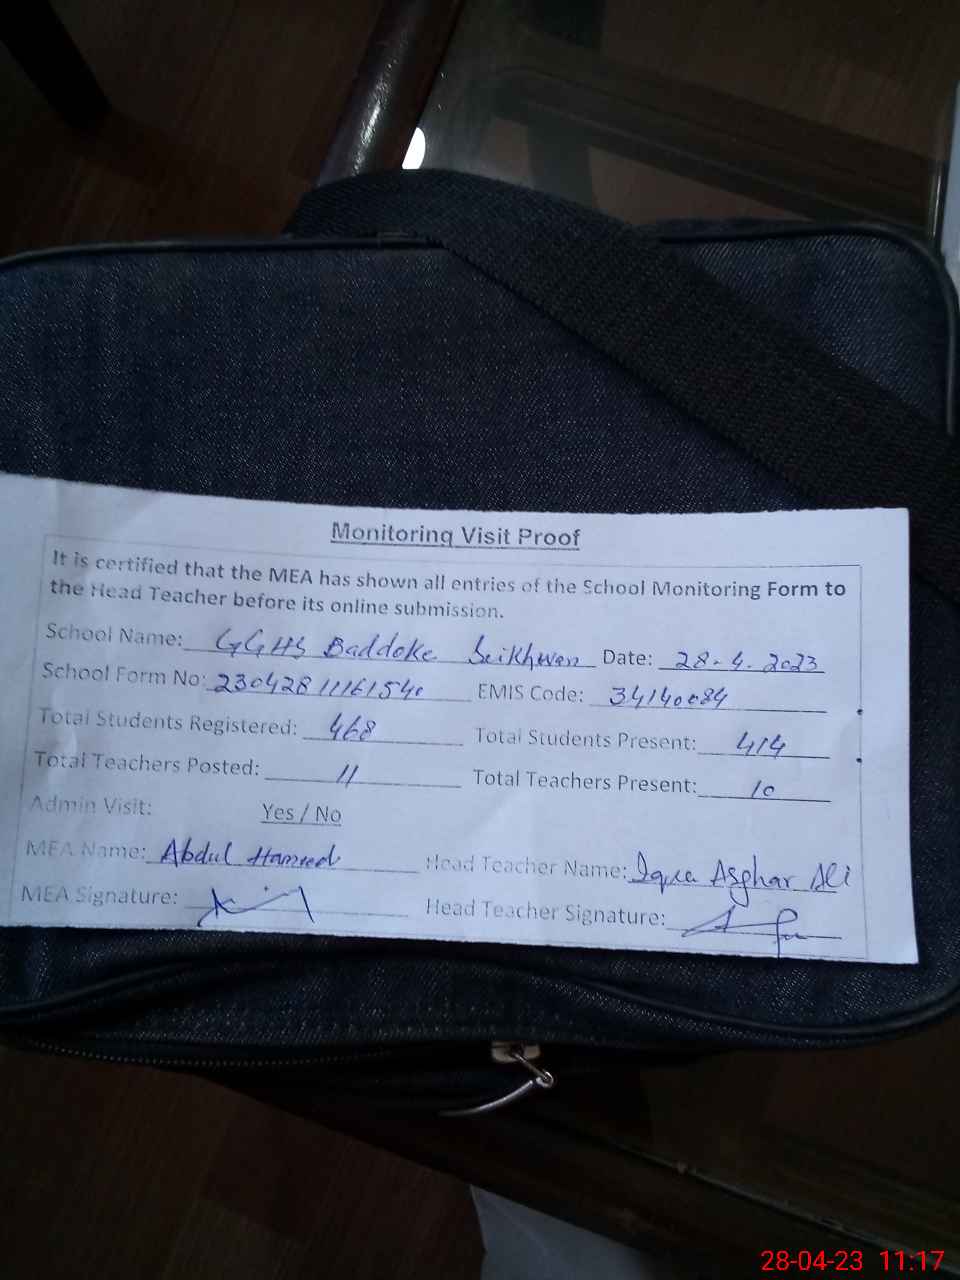 Monitoring Visit Proof
It is certified that the MEA has shown all entries of the School Monitoring Form to
the Head Teacher before its online submission.
School Name: GGHS Baddoke Seikhwan Date: 28-4-2023
School Form No: 23042811161540 EMIS Code: 34140084
Total Students Registered: 468 Total Students Present: 414
Total Teachers Posted: 11 Total Teachers Present: 10
Admin Visit: Yes / No
MEA Name: Abdul Hameed Head Teacher Name: Iqra Asghar Ali
MEA Signature: Head Teacher Signature:
28-04-23 11:17